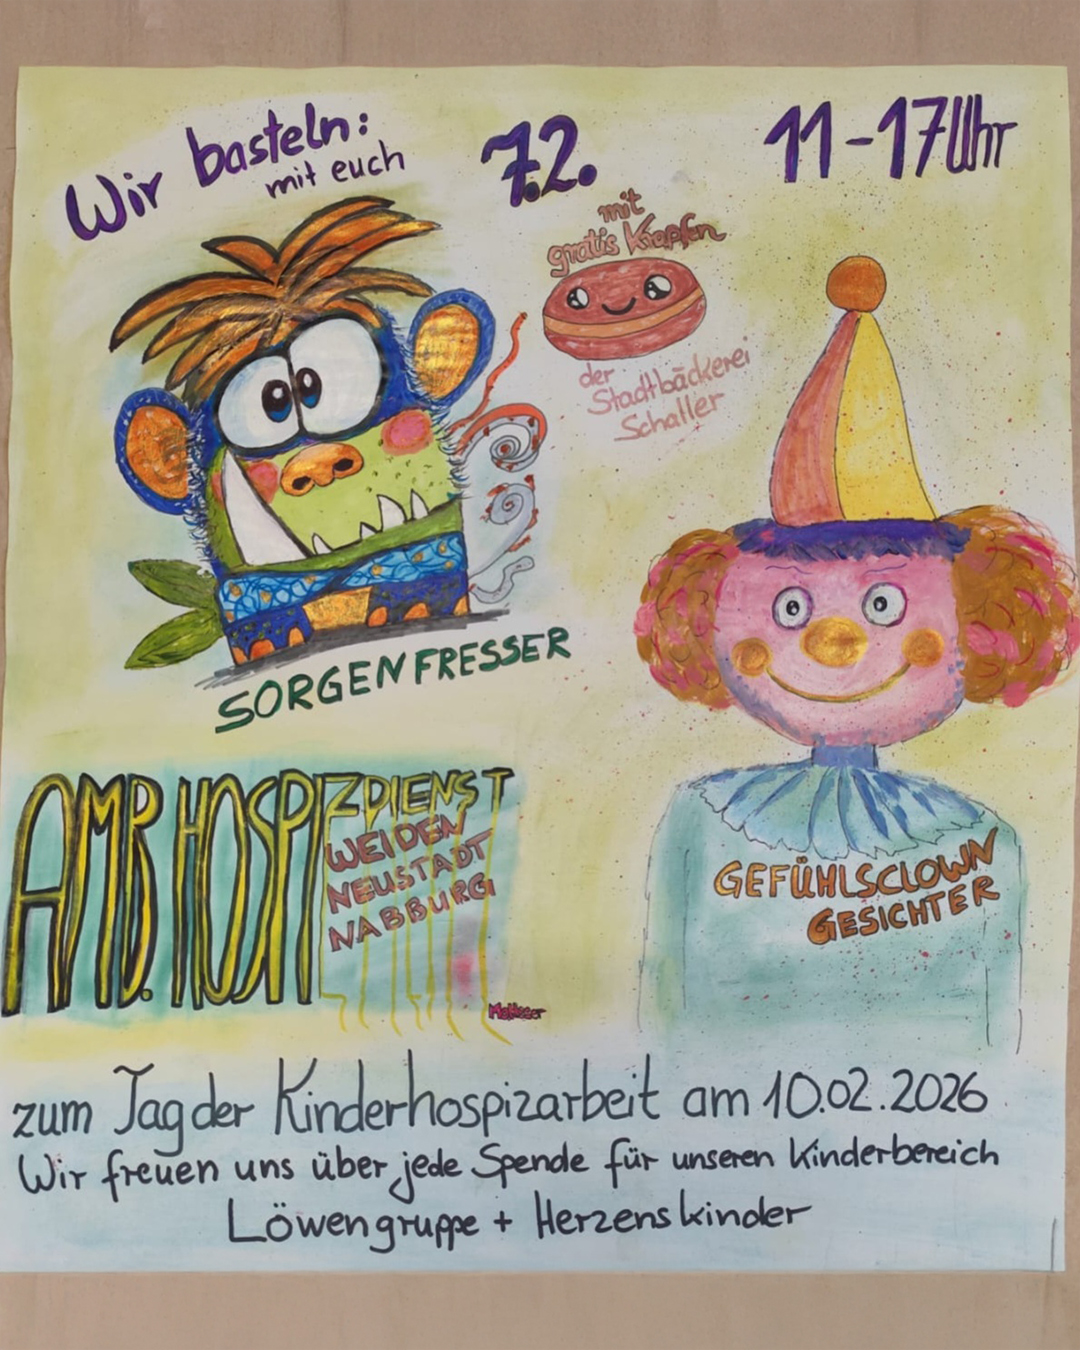 Wir basteln:
mit euch
7.2.
11-17Uhr
mit
gratis Krapfen
der
Stadtbäckerei
Schaller
SORGENFRESSER
AMB. HOSPIZDIENST
WEIDEN
NEUSTADT
NABBURG
GEFÜHLSCLOWN
GESICHTER
zum Tag der Kinderhospizarbeit am 10.02.2026
Wir freuen uns über jede Spende für unseren Kinderbereich
Löwengruppe + Herzenskinder